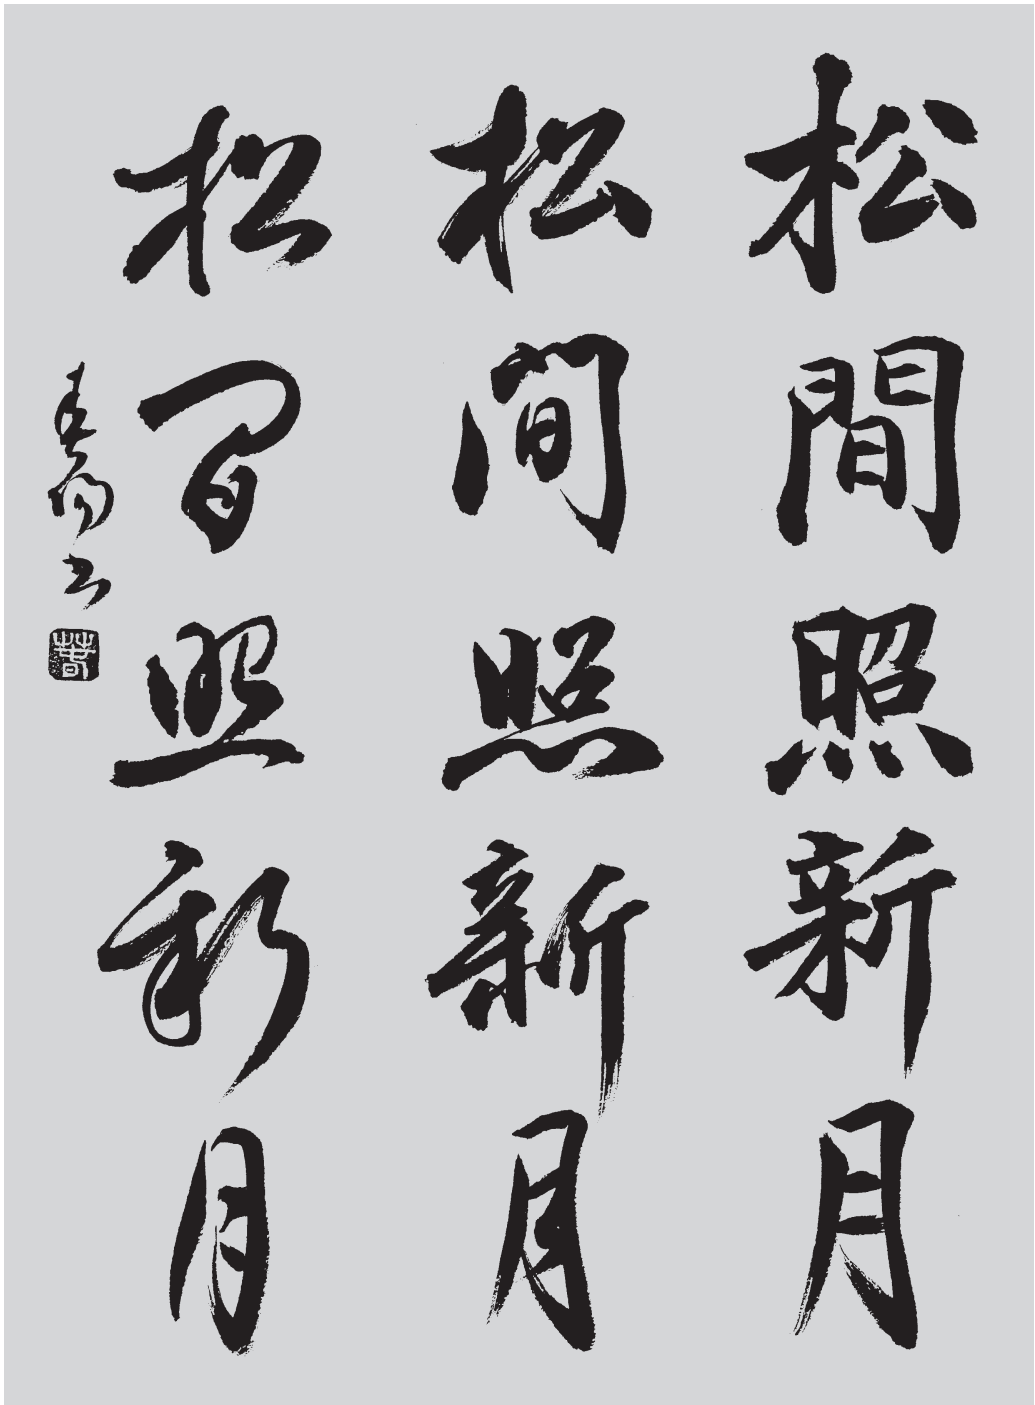 松間照新月
松間照新月
松間照新月